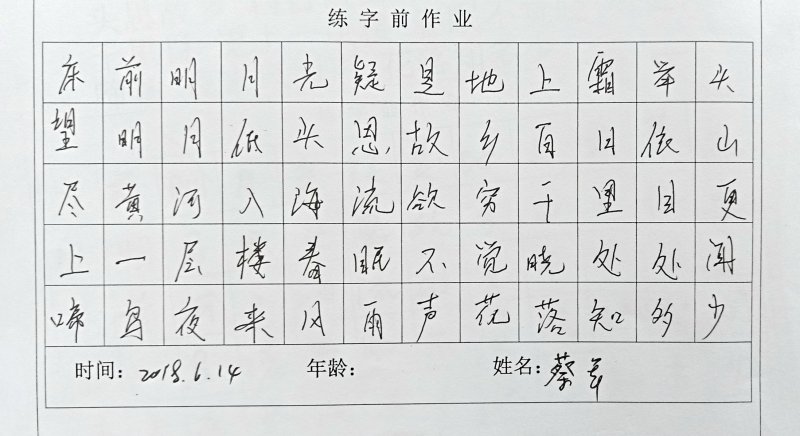 练字前作业
床前明月光疑是地上霜举头
望明月低头思故乡白日依山
尽黄河入海流欲穷千里目更
上一层楼春眠不觉晓处处闻
啼鸟夜来风雨声花落知多少
时间：2018.6.14 年龄： 姓名：蔡